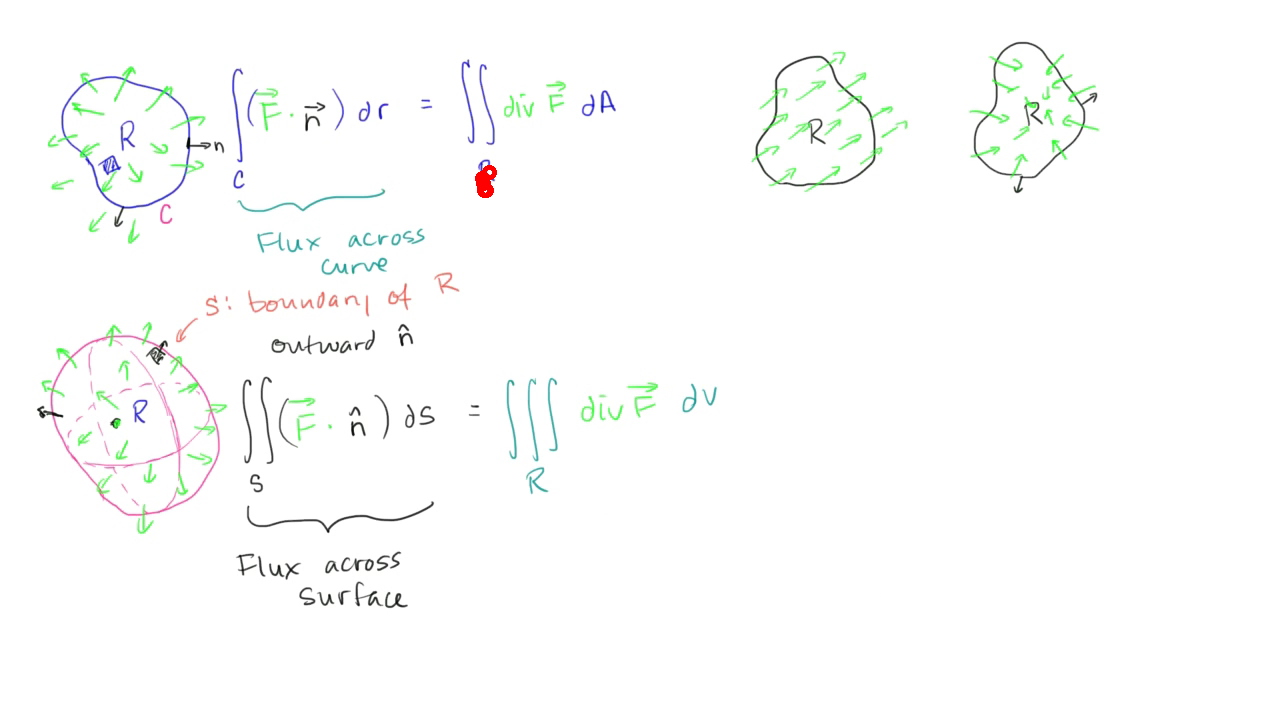 R
n
C
∫ (F⃗ · n⃗) dr = ∬ div F⃗ dA
C
Flux across
curve
R
R
S: boundary of R
outward n̂
R
∬ (F⃗ · n̂) dS = ∭ div F⃗ dV
S
R
Flux across
surface